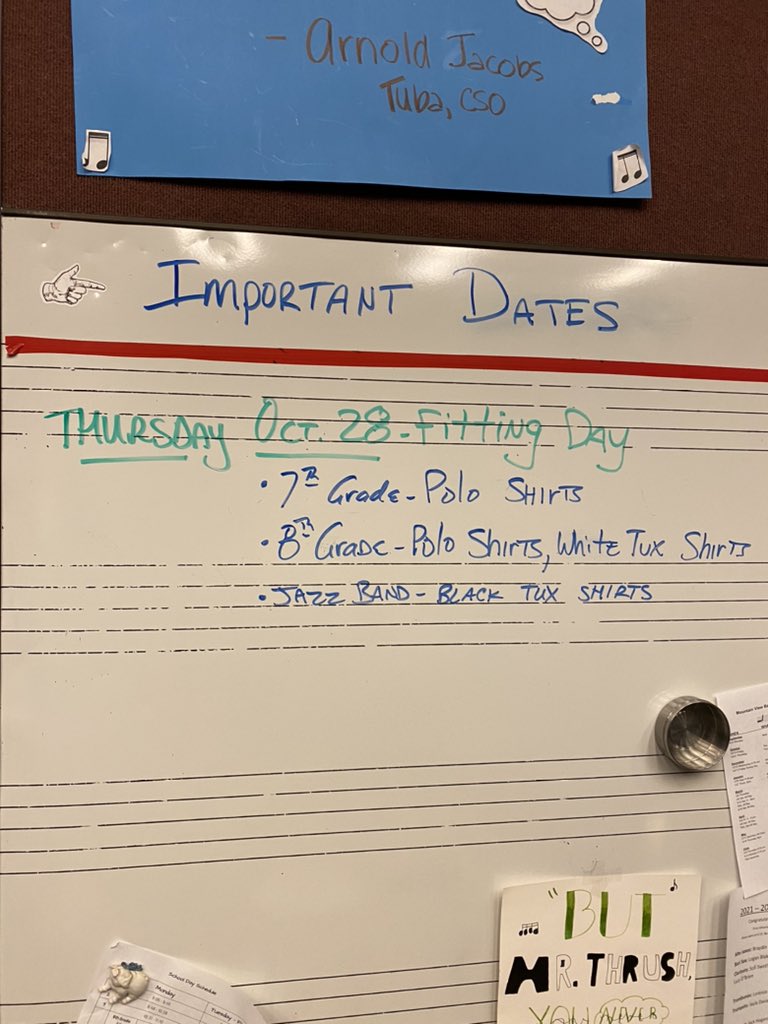 - Arnold Jacobs
Tuba, CSO
IMPORTANT DATES
THURSDAY OCT. 28 - Fitting DAY
• 7TH Grade - Polo SHIRTS
• 8TH GRADE - Polo SHIRTS, WHITE TUX SHIRTS
• JAZZ BAND - BLACK TUX SHIRTS
Mountain View
"BUT
MR. THRUSH,
YOU NEVER
School Day Schedule
Monday
Tuesday -
2021 - 20